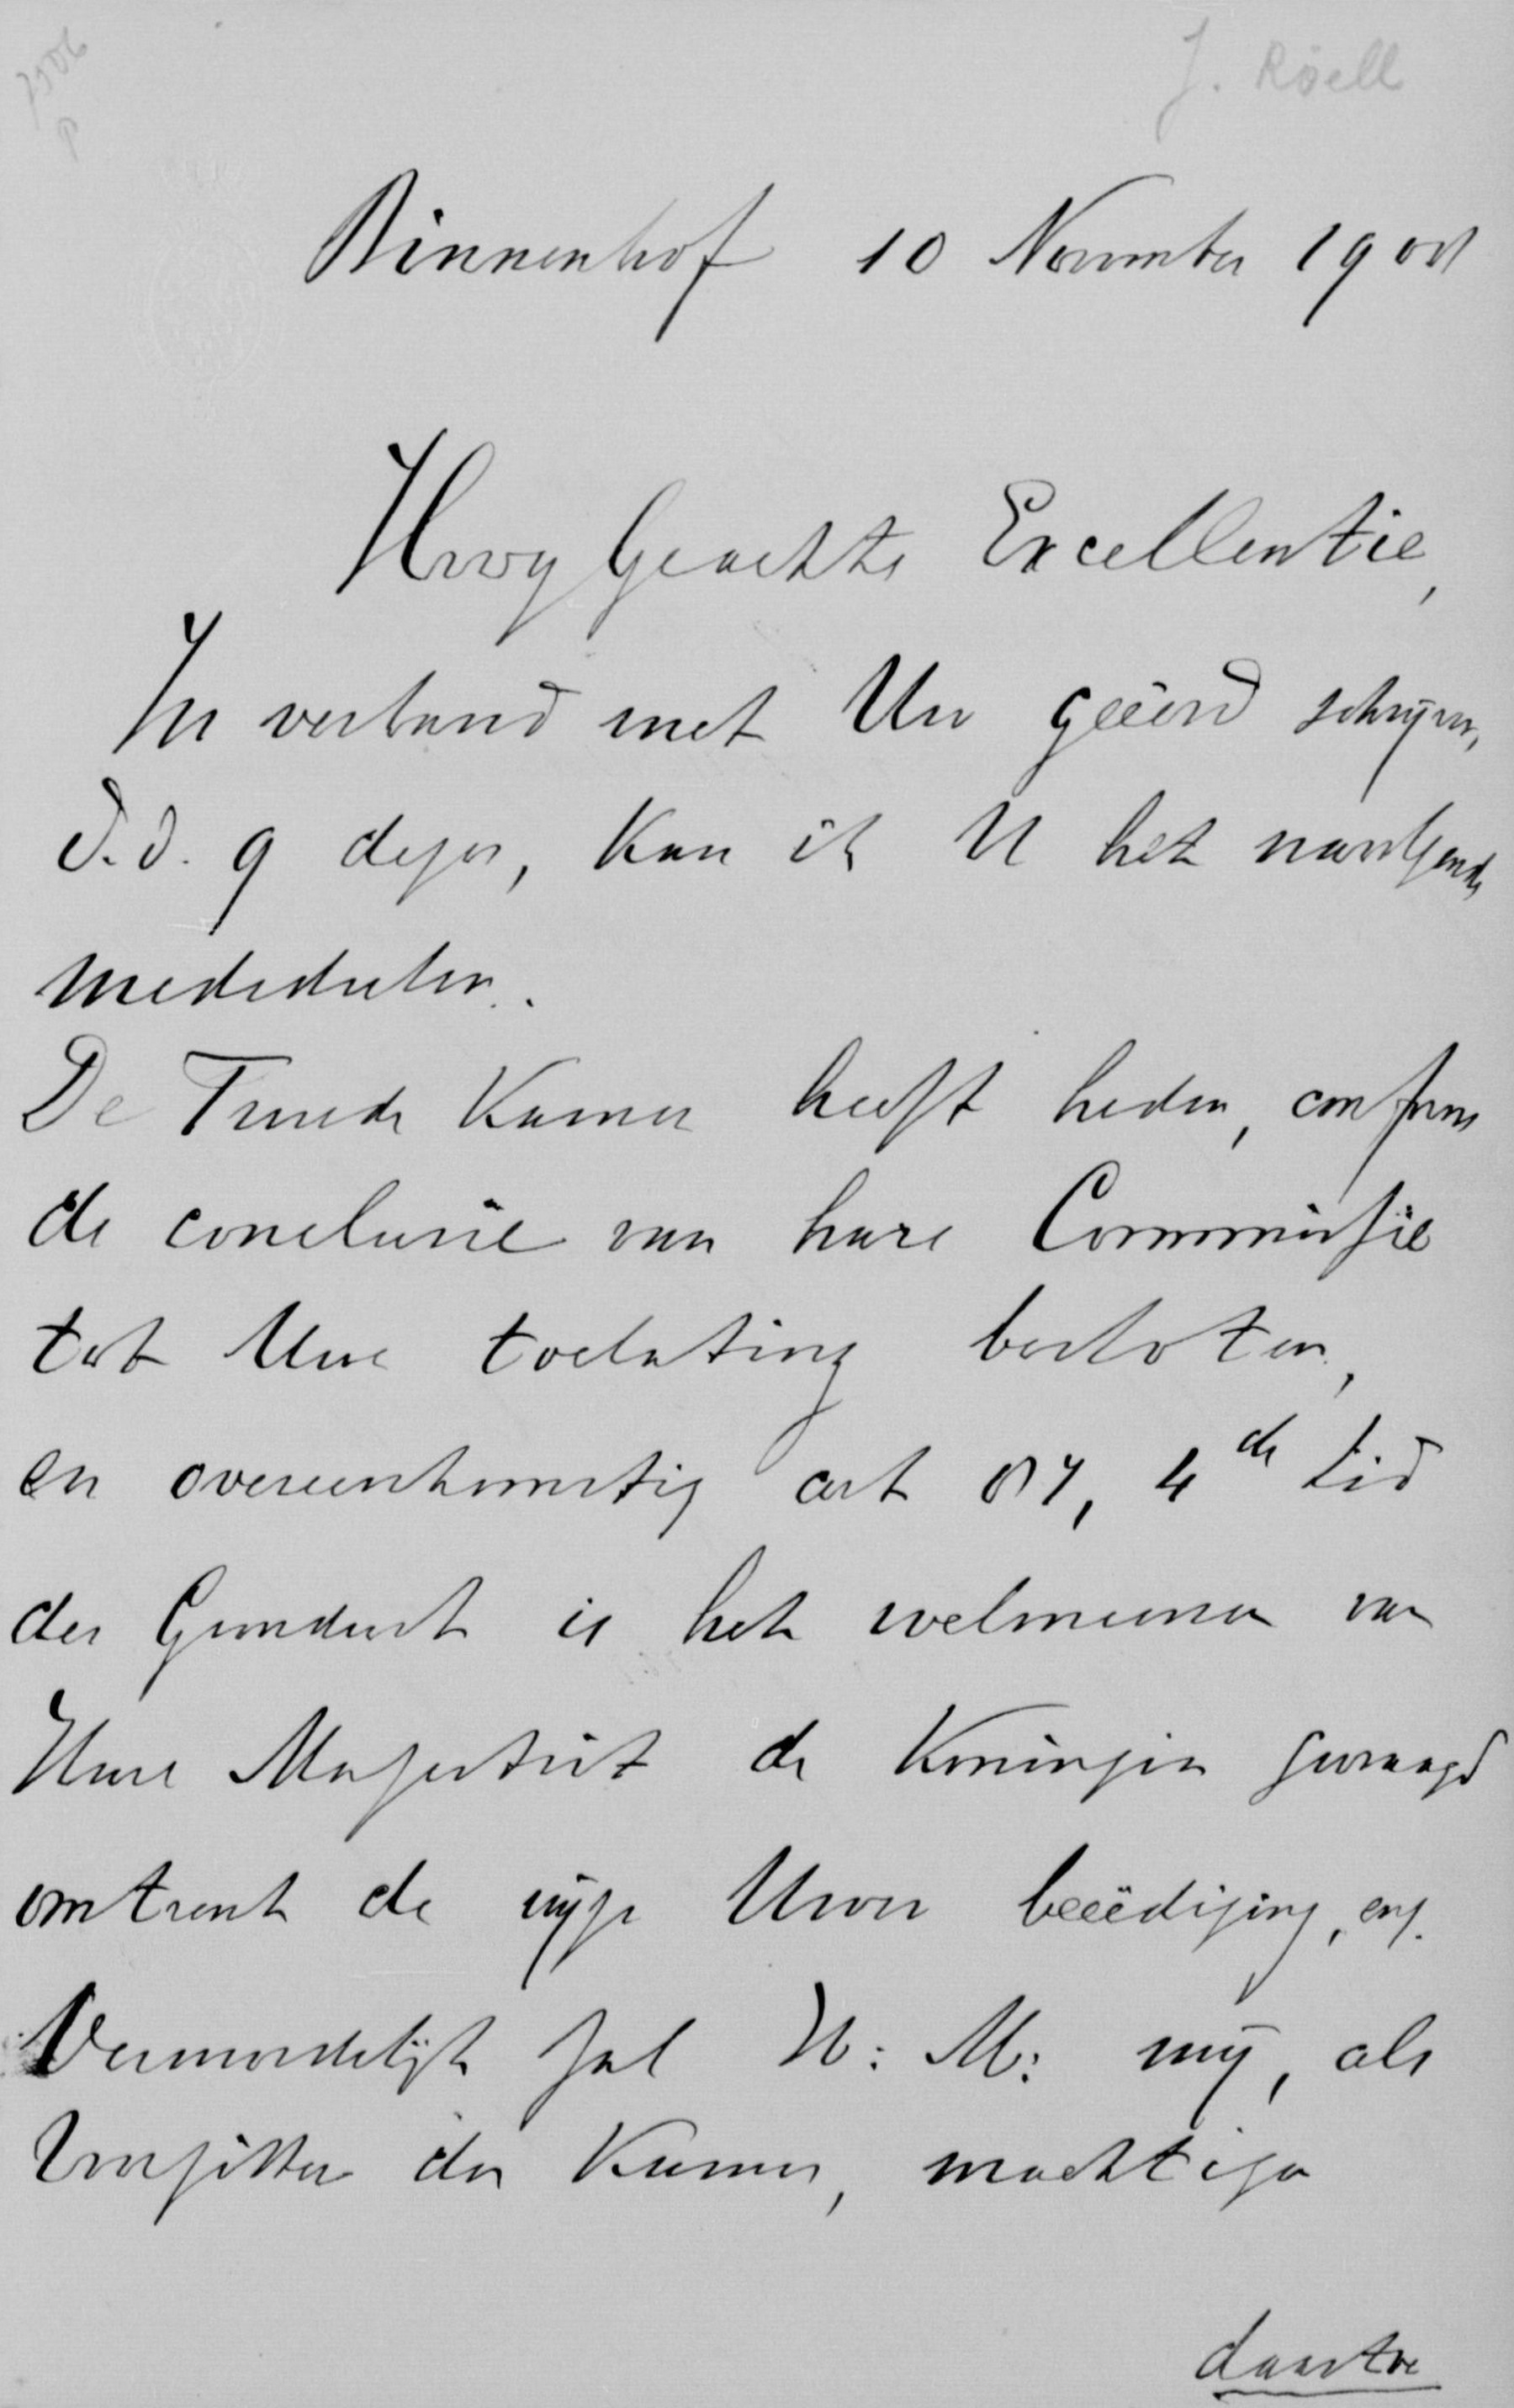 J. Röell
Binnenhof 10 November 1908
HoogGeachte Excellentie,
In verband met Uw geëerd schrijven,
d.d. 9 dezer, kan ik U het navolgende
mededeelen.
De Tweede Kamer heeft heden, conform
de conclusie van hare Commissie
tot Uwe toelating besloten,
en overeenkomstig art 87, 4de lid
der Grondwet is het welmeenen van
Hare Majesteit de Koningin gevraagd
omtrent de wijze Uwer beëediging, enz.
Vermoedelijk zal H: M: mij, als
Voorzitter der Kamer, machtigen
daartoe